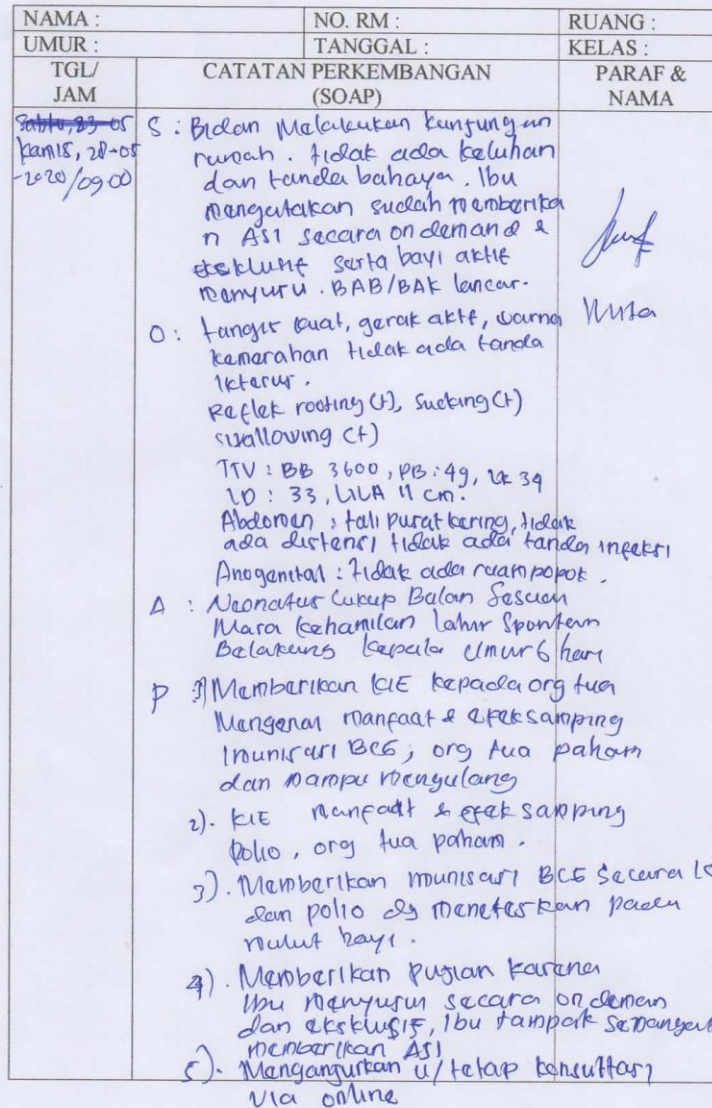 NAMA : NO. RM : RUANG :
UMUR : TANGGAL : KELAS :
TGL/ JAM CATATAN PERKEMBANGAN (SOAP) PARAF & NAMA
Sabtu, 23-05
Kamis, 28-05
-2020/09.00
S : Bidan Melakukan kunjungan
rumah. tidak ada keluhan
dan tanda bahaya. Ibu
mengatakan sudah memberika
n ASI secara on demand &
eksklusif serta bayi aktif
menyusu. BAB/BAK lancar.
O : tangis kuat, gerak aktif, warna
kemerahan tidak ada tanda
ikterus.
Reflek rooting (+), sucking (+)
swallowing (+)
TTV : BB 3600, PB : 49, LK 34
LD : 33, LILA 11 cm.
Abdomen : tali pusat kering, tidak
ada distensi tidak ada tanda infeksi
Anogenital : tidak ada ruam popok.
A : Neonatus Cukup Bulan Sesuai
Masa Kehamilan lahir Spontan
Belakang kepala Umur 6 hari
P 1) Memberikan KIE kepada org tua
Mengenai manfaat & efek samping
Imunisasi BCG; org tua paham
dan mampu mengulang
2). KIE manfaat & efek samping
Polio, org tua paham.
3). Memberikan imunisasi BCG secara IC
dan polio dg meneteskan pada
mulut bayi.
4). Memberikan pujian karena
Ibu menyusui secara on deman
dan eksklusif, Ibu tampak semangat
memberikan ASI
5). Menganjurkan u/ tetap konsultasi
via online